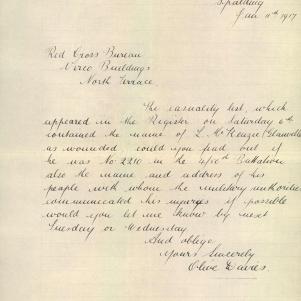 Spalding
Jan 11th 1917
Red Cross Bureau
Verco Buildings
North Terrace.
The casualty list, which
appeared in the Register on Saturday 6th
contained the name of L. McKenzie (Glanville)
as wounded, could you find out if
he was No 2210 in the 4/10th Battalion
also the name and address of his
people with whom the military authorities
communicated his injuries if possible
would you let me know by next
Tuesday or Wednesday
And oblige
Yours Sincerely
Olive Davies.